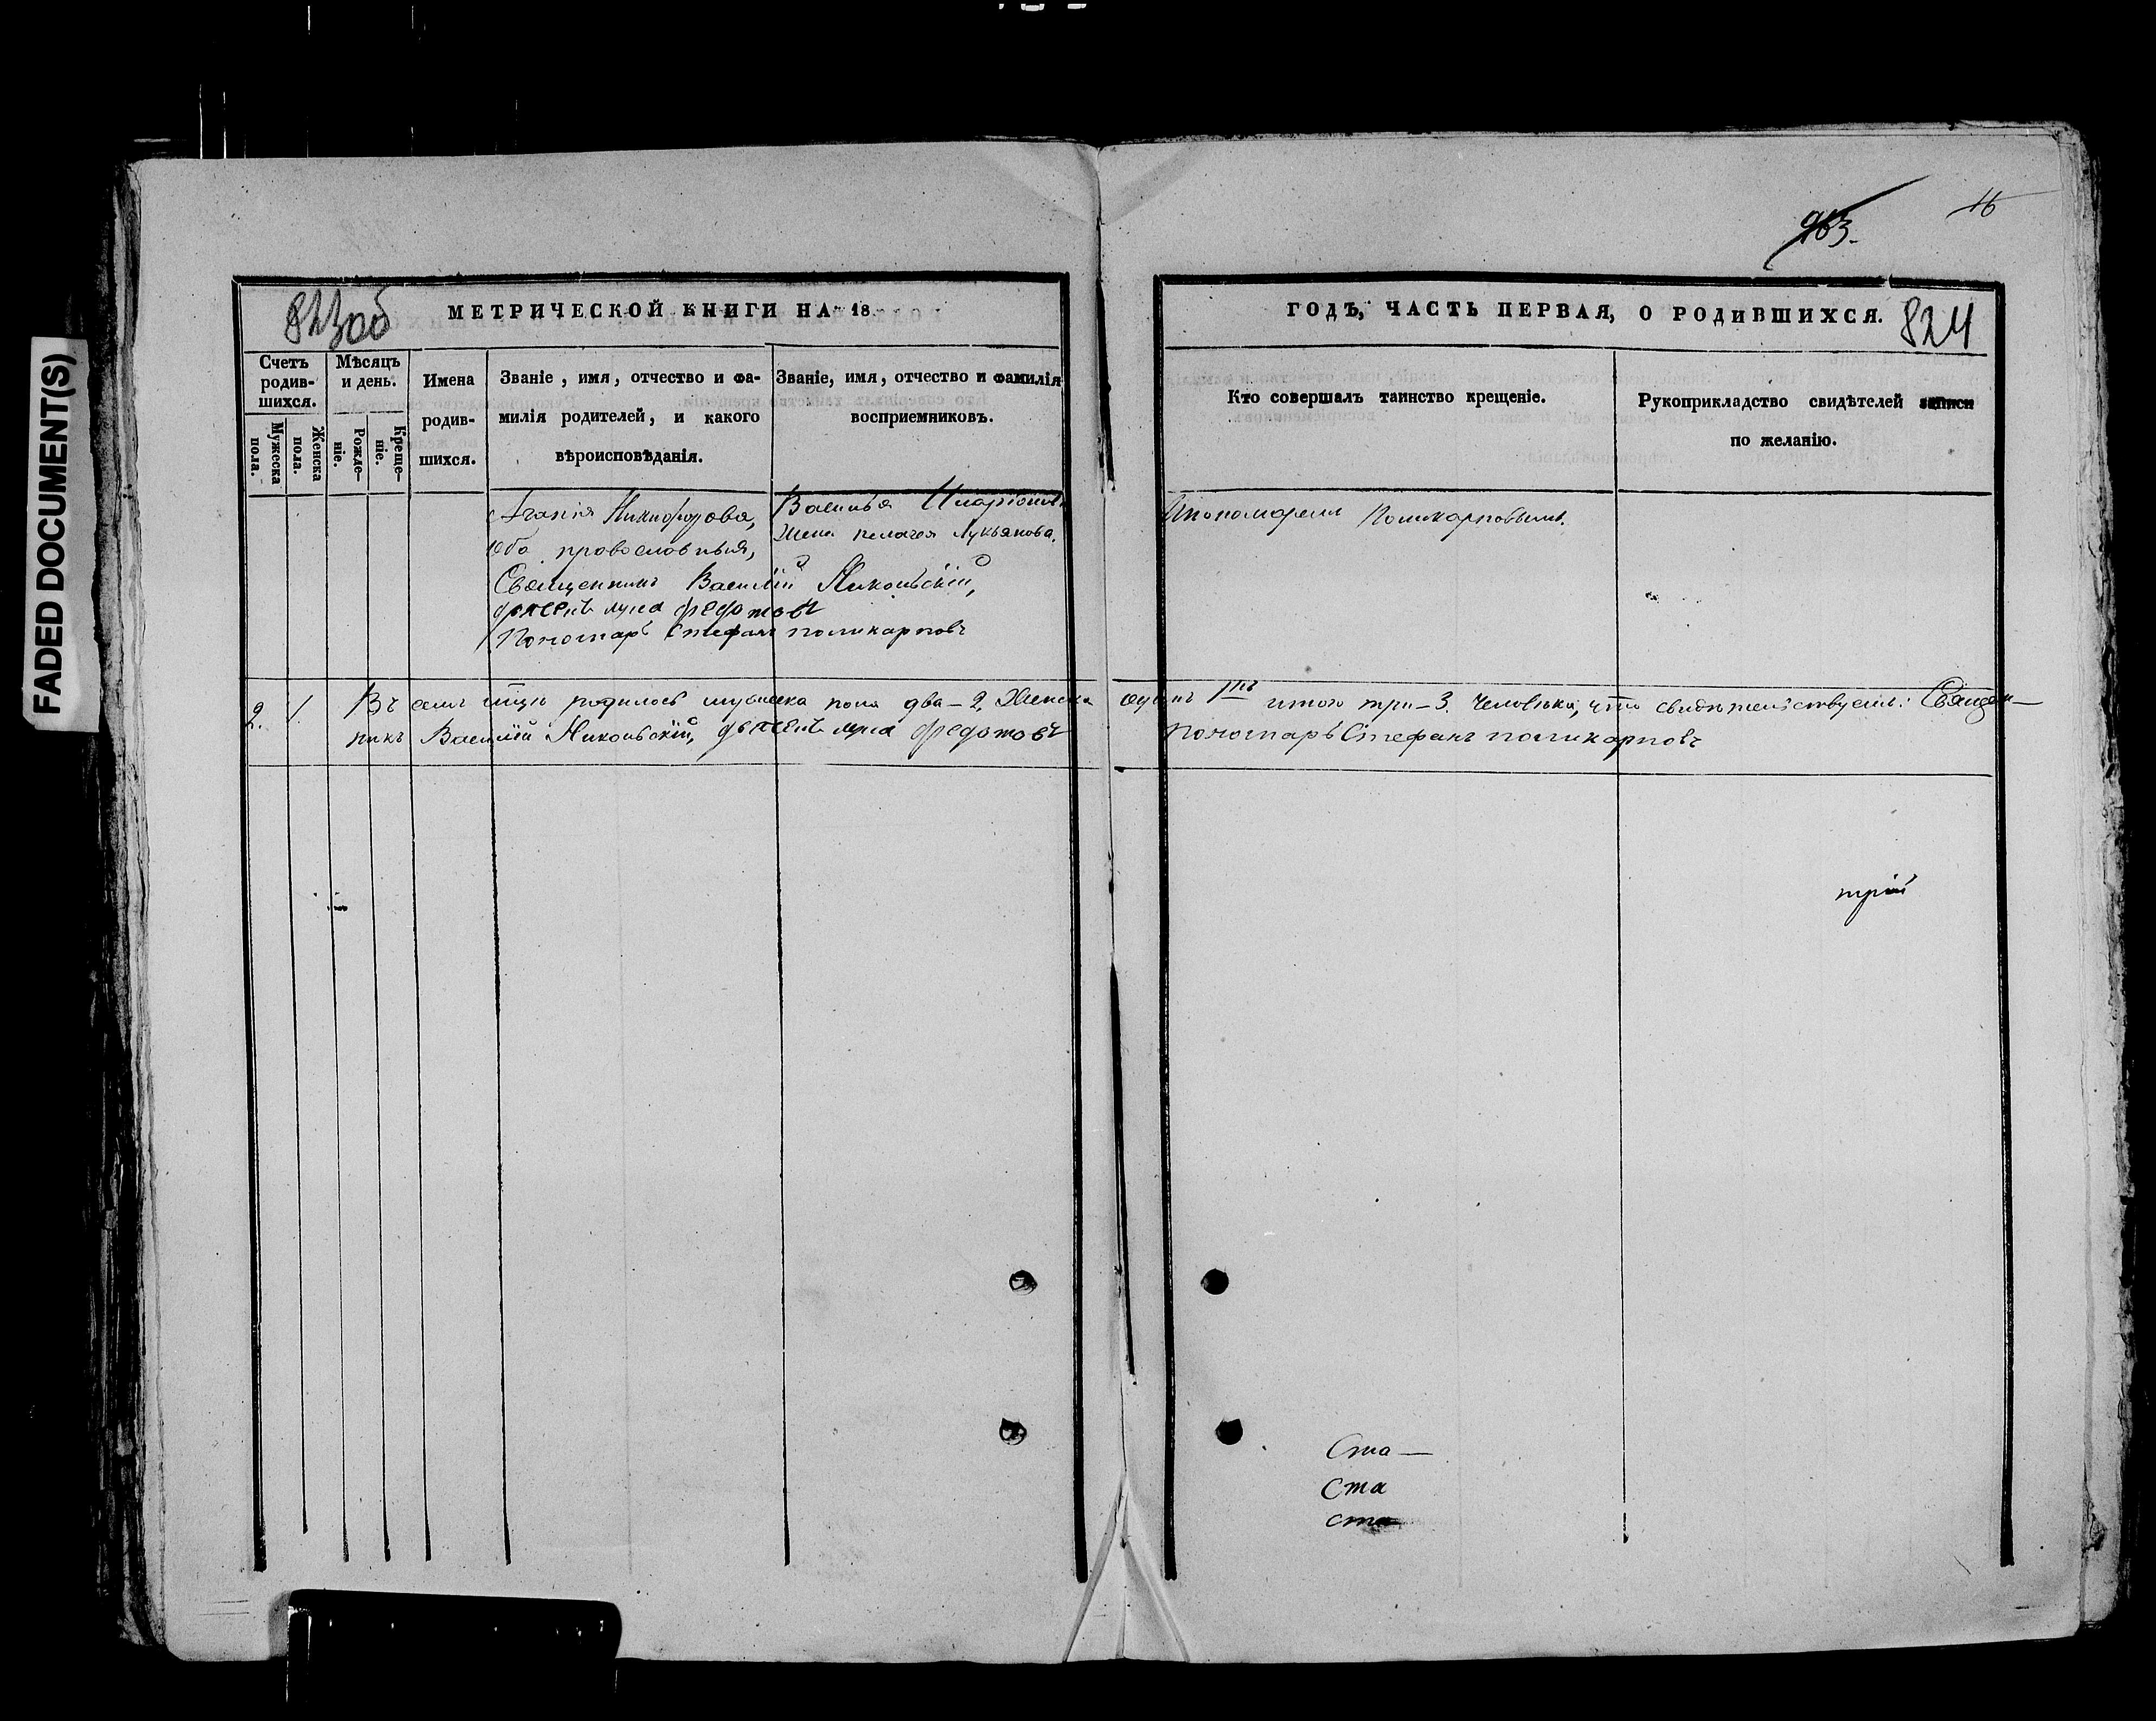 FADED DOCUMENT(S)
963.
16
823об
МЕТРИЧЕСКОЙ КНИГИ НА 18
ГОДЪ, ЧАСТЬ ПЕРВАЯ, О РОДИВШИХСЯ.
824
Счетъ родив-шихся.
Мужеска пола.
Женска пола.
Мѣсяцъ и день.
Рожде-ніе.
Креще-ніе.
Имена
родив-
шихся.
Званіе, имя, отчество и фа-
милія родителей, и какого
вѣроисповѣданія.
Званіе, имя, отчество и фамилія
восприемниковъ.
Кто совершалъ таинство крещеніе.
Рукоприкладство свидѣтелей записи
по желанію.
Агапія Никифорова,
оба православныя,
Священникъ Василій Никольскій,
дьячекъ Лука Федотовъ
Пономарь Стефанъ Поликарповъ
Василья Иларіонова
жена Пелагея Лукьянова.
Пономарем Поликарповымъ.
2. 1. Въ семъ мцѣ родилось мужеска пола два – 2, Женска одинъ итого три – 3. Человѣка, что свидѣтельствуемъ: Священ–
никъ Василій Никольскій, дьячекъ Лука Федотовъ Пономарь Стефанъ Поликарповъ
трій
Ста —
Ста
ста